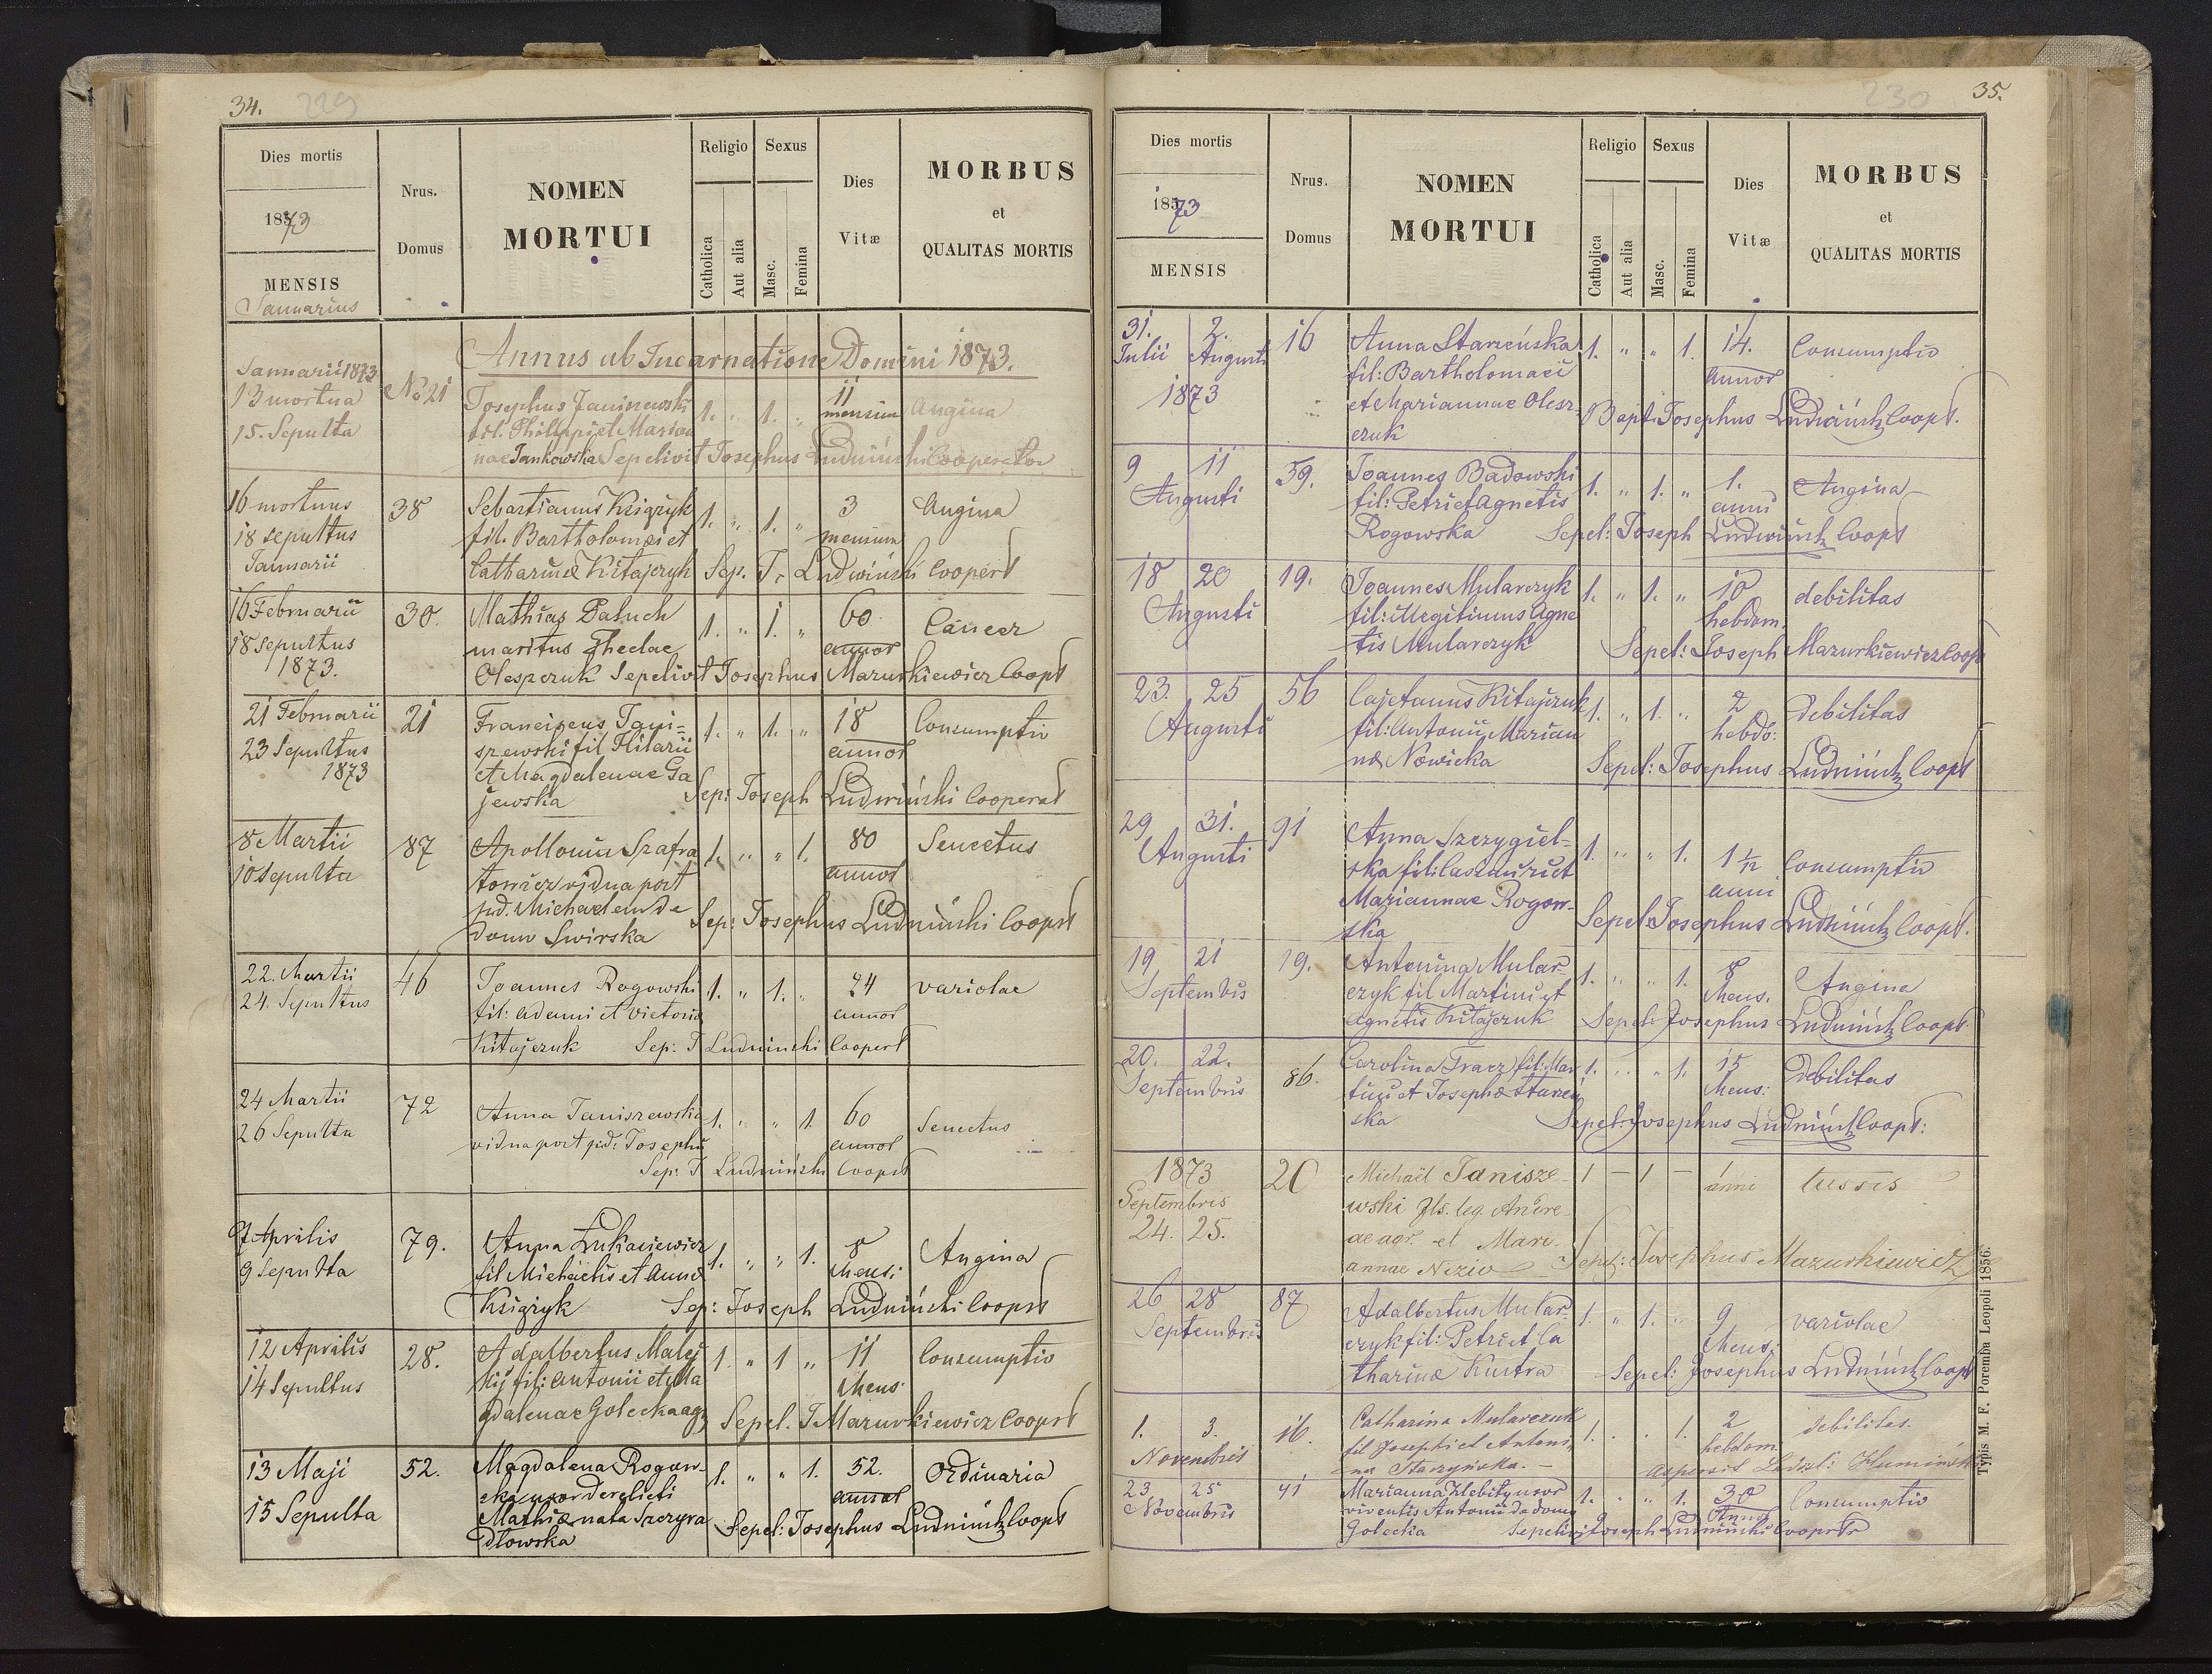 34. 229
Dies mortis
1873
MENSIS
Januarius
Nrus.
Domus
NOMEN
MORTUI
Religio
Catholica
Aut alia
Sexus
Masc.
Femina
Dies
Vitæ
MORBUS
et
QUALITAS MORTIS
Annus ab Incarnatione Domini 1873.
Januarii 1873
13 mortua
15. Sepulta
No 21
Josephus Janiszewski
fil. Philippi et Marian
nae Jankowska Sepelivit Josephus Ludwiński Cooperator
1. " 1. "
11
mensium
Angina
16 mortuus
18 sepultus
Januarii
38
Sebastianus Księżyk
fil. Bartholomæi et
Catharinæ Kitajczyk Sep. J. Ludwiński Coopert
1. " 1. "
3
mensium
Angina
16 Februarii
18 Sepultus
1873.
30.
Mathias Paluch
maritus Theclae
Olesczuk Sepelivit Josephus Mazurkiewicz Coopt
1. " 1. "
60
annor
Cancer
21 Februarii
23 Sepultus
1873
21
Franciscus Jani=
szewski fil Hilarii
et Magdalenae Ga
jewska Sep: Joseph Ludwiński Cooperat
1. " 1. "
18
annor
Consumptio
8 Martii
10 Sepulta
87
Apollonia Szafra
towicz vidua post
pd. Michaelem de
domo Swirska Sep: Josephus Ludwiński Coopst
1. " " 1.
80
annor
Senectus
22. Martii
24. Sepultus
46
Joannes Rogowski
fil: Adami et Victoriæ
Kitajczuk Sep: J Ludwinski Coopert
1. " 1. "
24
annor
variolae
24 Martii
26 Sepulta
72
Anna Janiszewska
vidua post pd: Josephu
Sep: J Ludwiński Coopst
1. " " 1.
60
annor
Senectus
7 Aprilis
9 Sepulta
79.
Anna Łukasiewicz
fil Michaelis et Annæ
Księżyk Sep: Joseph Ludwiński Coopst
1. " " 1.
8
Mens:
Angina
12 Aprilis
14 Sepultus
28.
Adalbertus Malej
kij fil: Antonii et Ma
gdalenae Golecka agr Sepel. J Mazurkiewicz Coopst
1. " 1 "
11
Mens.
Consumptio
13 Maji
15 Sepulta
52.
Magdalena Rogow-
ska uxor derelicti
Mathiæ nata Szczyra
dłowska Sepel: Josephus Ludwińsk Coopt
1. " " 1.
52.
annor
Ordinaria
230 35.
Dies mortis
1873
MENSIS
Nrus.
Domus
NOMEN
MORTUI
Religio
Catholica
Aut alia
Sexus
Masc.
Femina
Dies
Vitæ
MORBUS
et
QUALITAS MORTIS
31. 2.
Julii Augusti
1873
16
Anna Starzeńska
fil: Bartholomaei
et Mariannae Olesz
czuk Bapt: Josephus Ludwińsk Coopt.
1. " " 1.
14.
annor
Consumptio
9 11
Augusti
59.
Joannes Badowski
fil: Petri et Agnetis
Rogowska Sepel: Joseph Ludwińsk Coopt
1. " 1. "
1.
anni
Angina
18 20
Augusti
19.
Joannes Mularczyk
fil: illegitimus Agne
tis Mularczyk Sepel: Joseph Mazurkiewicz Coopt
1. " 1. "
10
hebdom.
debilitas
23. 25
Augusti
56
Cajetanus Kitajczuk
fil: Antonii Marian
næ Nowicka Sepel: Josephus Ludwińsk Coopt
1. " 1. "
2
hebdo:
Debilitas
29 31.
Augusti
91
Anna Szczygiel-
ska fil: Casimiri et
Mariannae Rogow-
ska Sepel: Josephus Ludwińsk Coopt.
1. " " 1.
1 1/2
anni
Consumptio
19 21
Septembris
19.
Antonina Mular-
czyk fil Martini et
Agnetis Kitajczuk Sepel: Josephus Ludwińsk Coopt.
1. " " 1.
8
Mens.
Angina
20. 22.
Septembris
86.
Carolina Tracz fil: Mar
tini et Josephæ Starzeń
ska Sepel: Josephus Ludwińsk Coopt:
1. " " 1.
15
Mens:
Debilitas
1873
Septembris
24. 25.
20
Michaël Janisze-
wski fls. leg. Andre-
ae agr. et Mari-
annae Nizio Sepel: Josephus Mazurkiewicz
1 — 1 —
1
anni
tussis
26 28
Septembris
87
Adalbertus Mular-
czyk fil: Petri et Ca
tharinæ Kustra Sepel: Josephus Ludwińsk Coopt
1. " 1. "
9
Mens:
variolae
1. 3.
Novembris
16.
Catharina Mularczuk
fil Josephi et Antoni-
na Starzyńska. — aspersit
1. " " 1.
2
hebdom.
debilitas.
23 25
Novembris
41
Marianna Chlebity uxor
viventis Antonii de domo
Golecka Sepelivi Joseph Ludwiński Cooprtr
1. " " 1.
30
Anno
Consumptio
Typis M. F. Poremba Leopoli 1856.